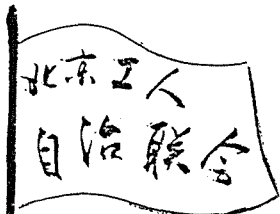 北京工人
自治联合